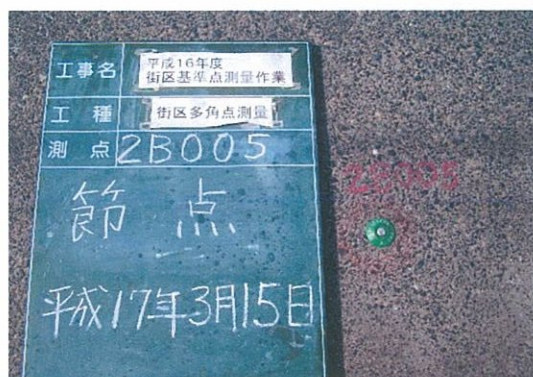 工事名
平成16年度
街区基準点測量作業
工種
街区多角点測量
測点
2B005
節点
平成17年3月15日
2B005